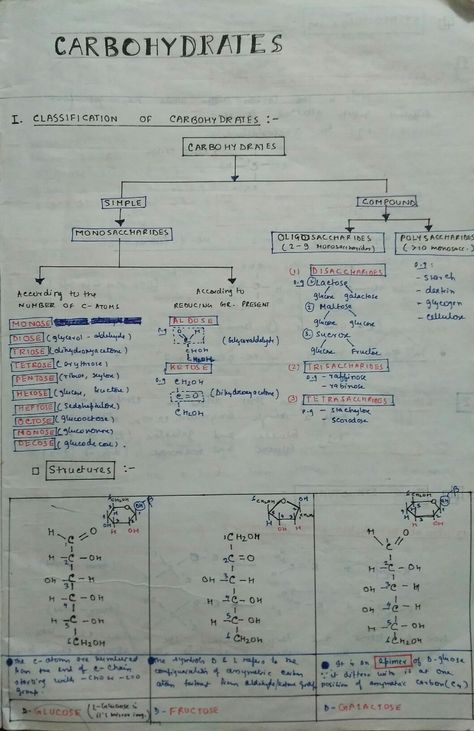 CARBOHYDRATES
I. CLASSIFICATION OF CARBOHYDRATES :-
CARBOHYDRATES
SIMPLE
COMPOUND
MONOSACCHARIDES
OLIGOSACCHARIDES
(2-9 Monosaccharides)
POLYSACCHARIDES
(>10 monosacc.)
According to the
NUMBER OF C-ATOMS
According to
REDUCING GR. PRESENT
MONOSE
DIOSE (glycerol-aldehyde)
TRIOSE (dihydroxyacetone)
TETROSE (erythrose)
PENTOSE (ribose, xylose)
HEXOSE (glucose, fructose)
HEPTOSE (Sedoheptulose)
OCTOSE (glucooctose)
NONOSE (gluconose)
DECOSE (glucodecose)
ALDOSE
e.g
H O
C
CHOH
CH₂OH
(Glyceraldehyde)
KETOSE
e.g CH₂OH
C=O
CH₂OH
(Dihydroxyacetone)
(1) DISACCHARIDES
e.g ① Lactose
glucose galactose
2. Maltose
glucose glucose
3. Sucrose
glucose Fructose
(2) TRISACCHARIDES
e.g - raffinose
- rabinose
(3) TETRASACCHARIDES
e.g - stachylose
- scorodose
e.g:
- starch
- dextrin
- glycogen
- cellulose
□ Structures :-
H O
C
H - C - OH
OH - C - H
H - C - OH
H - C - OH
CH₂OH
CH₂OH
C = O
OH - C - H
H - C - OH
H - C - OH
CH₂OH
H O
C
H - C - OH
OH - C - H
OH - C - H
H - C - OH
CH₂OH
The C-atoms are numbered
from the end of C-chain
starting with -CHO
group.
D-GLUCOSE
The symbols D & L refers to the
configuration of asymmetric carbon
atom furthest from aldehyde/ketone group
D-FRUCTOSE
It is an Epimer of D-glucose
∵ it differs with it at one
position of asymmetric carbon (C₄)
D-GALACTOSE